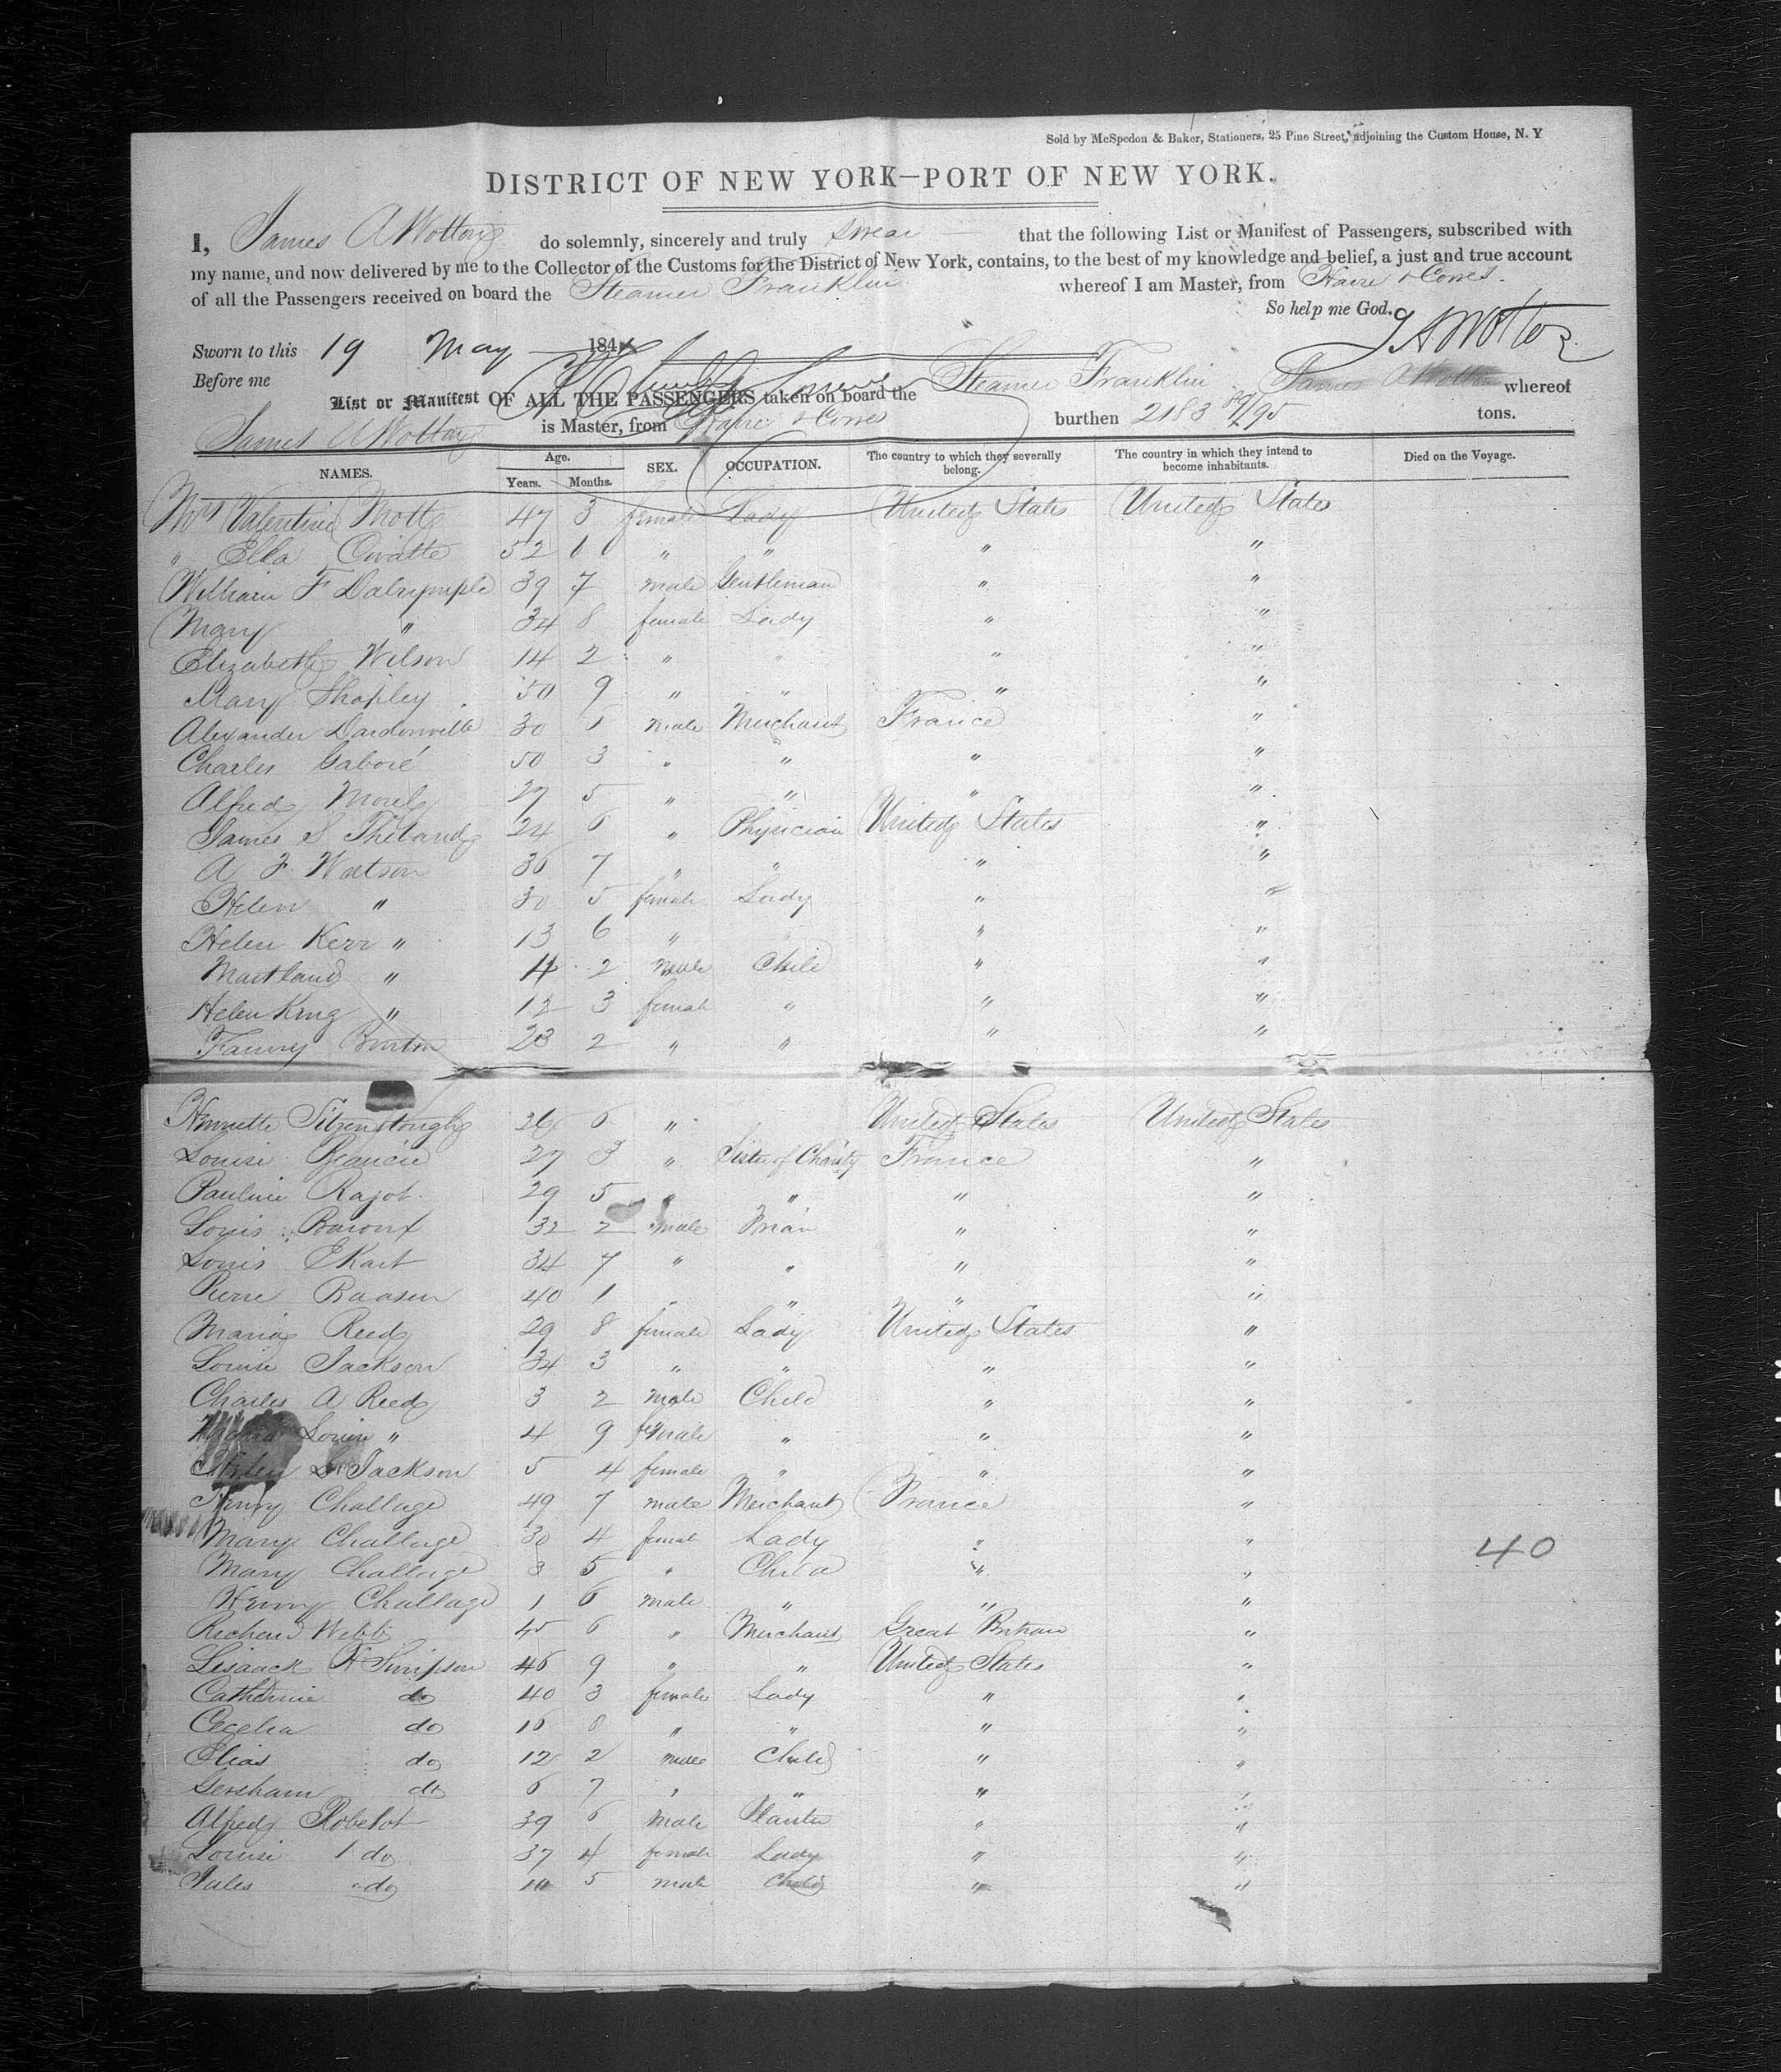 Sold by McSpedon & Baker, Stationers, 25 Pine Street, adjoining the Custom House, N. Y
DISTRICT OF NEW YORK—PORT OF NEW YORK.
I, James A Wotton do solemnly, sincerely and truly swear that the following List or Manifest of Passengers, subscribed with
my name, and now delivered by me to the Collector of the Customs for the District of New York, contains, to the best of my knowledge and belief, a just and true account
of all the Passengers received on board the Steamer Franklin whereof I am Master, from Havre & Cowes.
So help me God. J A Wotton
Sworn to this 19 May 184
Before me
List or Manifest OF ALL THE PASSENGERS taken on board the Steamer Franklin James A Wotton whereof
James A Wotton is Master, from Havre & Cowes burthen 2183 89/95 tons.
NAMES. Age. Years. Months. SEX. OCCUPATION. The country to which they severally belong. The country in which they intend to become inhabitants. Died on the Voyage.
Mrs Valentine Mott 47 3 female Lady United States United States
" Ella 52 " " " "
William F Dalrymple 39 7 male Gentleman " "
Mary " 34 8 female Lady " "
Elizabeth Wilson 14 2 " " " "
Mary Shapley 50 9 " " " "
Alexander Dardonville 30 male Merchant France "
Charles Gaboré 50 3 " " " "
Alfred Morel 27 5 " " " "
James S Thebaud 24 6 " Physician United States "
A F Watson 36 7 " " " "
Helen " 30 5 female Lady " "
Helen Kerr " 13 6 " " "
Maitland " 4 2 male Child " "
Helen King " 12 3 female " " "
Fanny Burton 23 2 " " " "
26 6 " United States United States
Louise 27 3 " Sister of Charity France "
Pauline Rajot 29 5 " " " "
Louis 32 2 male " "
Louis Ekart 34 7 " " " "
Pierre 40 1 " " " "
Maria Reed 29 8 female Lady United States "
Louise Jackson 34 3 " " " "
Charles A Reed 3 2 male Child " "
Louise " 4 9 female " " "
Jackson 5 4 female " " "
Henry Challage 49 7 male Merchant France "
Mary Challage 30 4 female Lady " "
Mary Challage 3 5 " Child " "
Henry Challage 1 6 male " " "
Richard Webb 45 6 " Merchant Great Britain "
Lisaack H Simpson 46 9 " " United States "
Catherine do 40 3 female Lady " "
Cecelia do 16 8 " " " "
Elias do 12 2 male Child " "
Gersham do 6 7 " " " "
Alfred Robelot 39 6 male Planter " "
Louise do 37 4 female Lady " "
Jules do 5 male Child " "
40